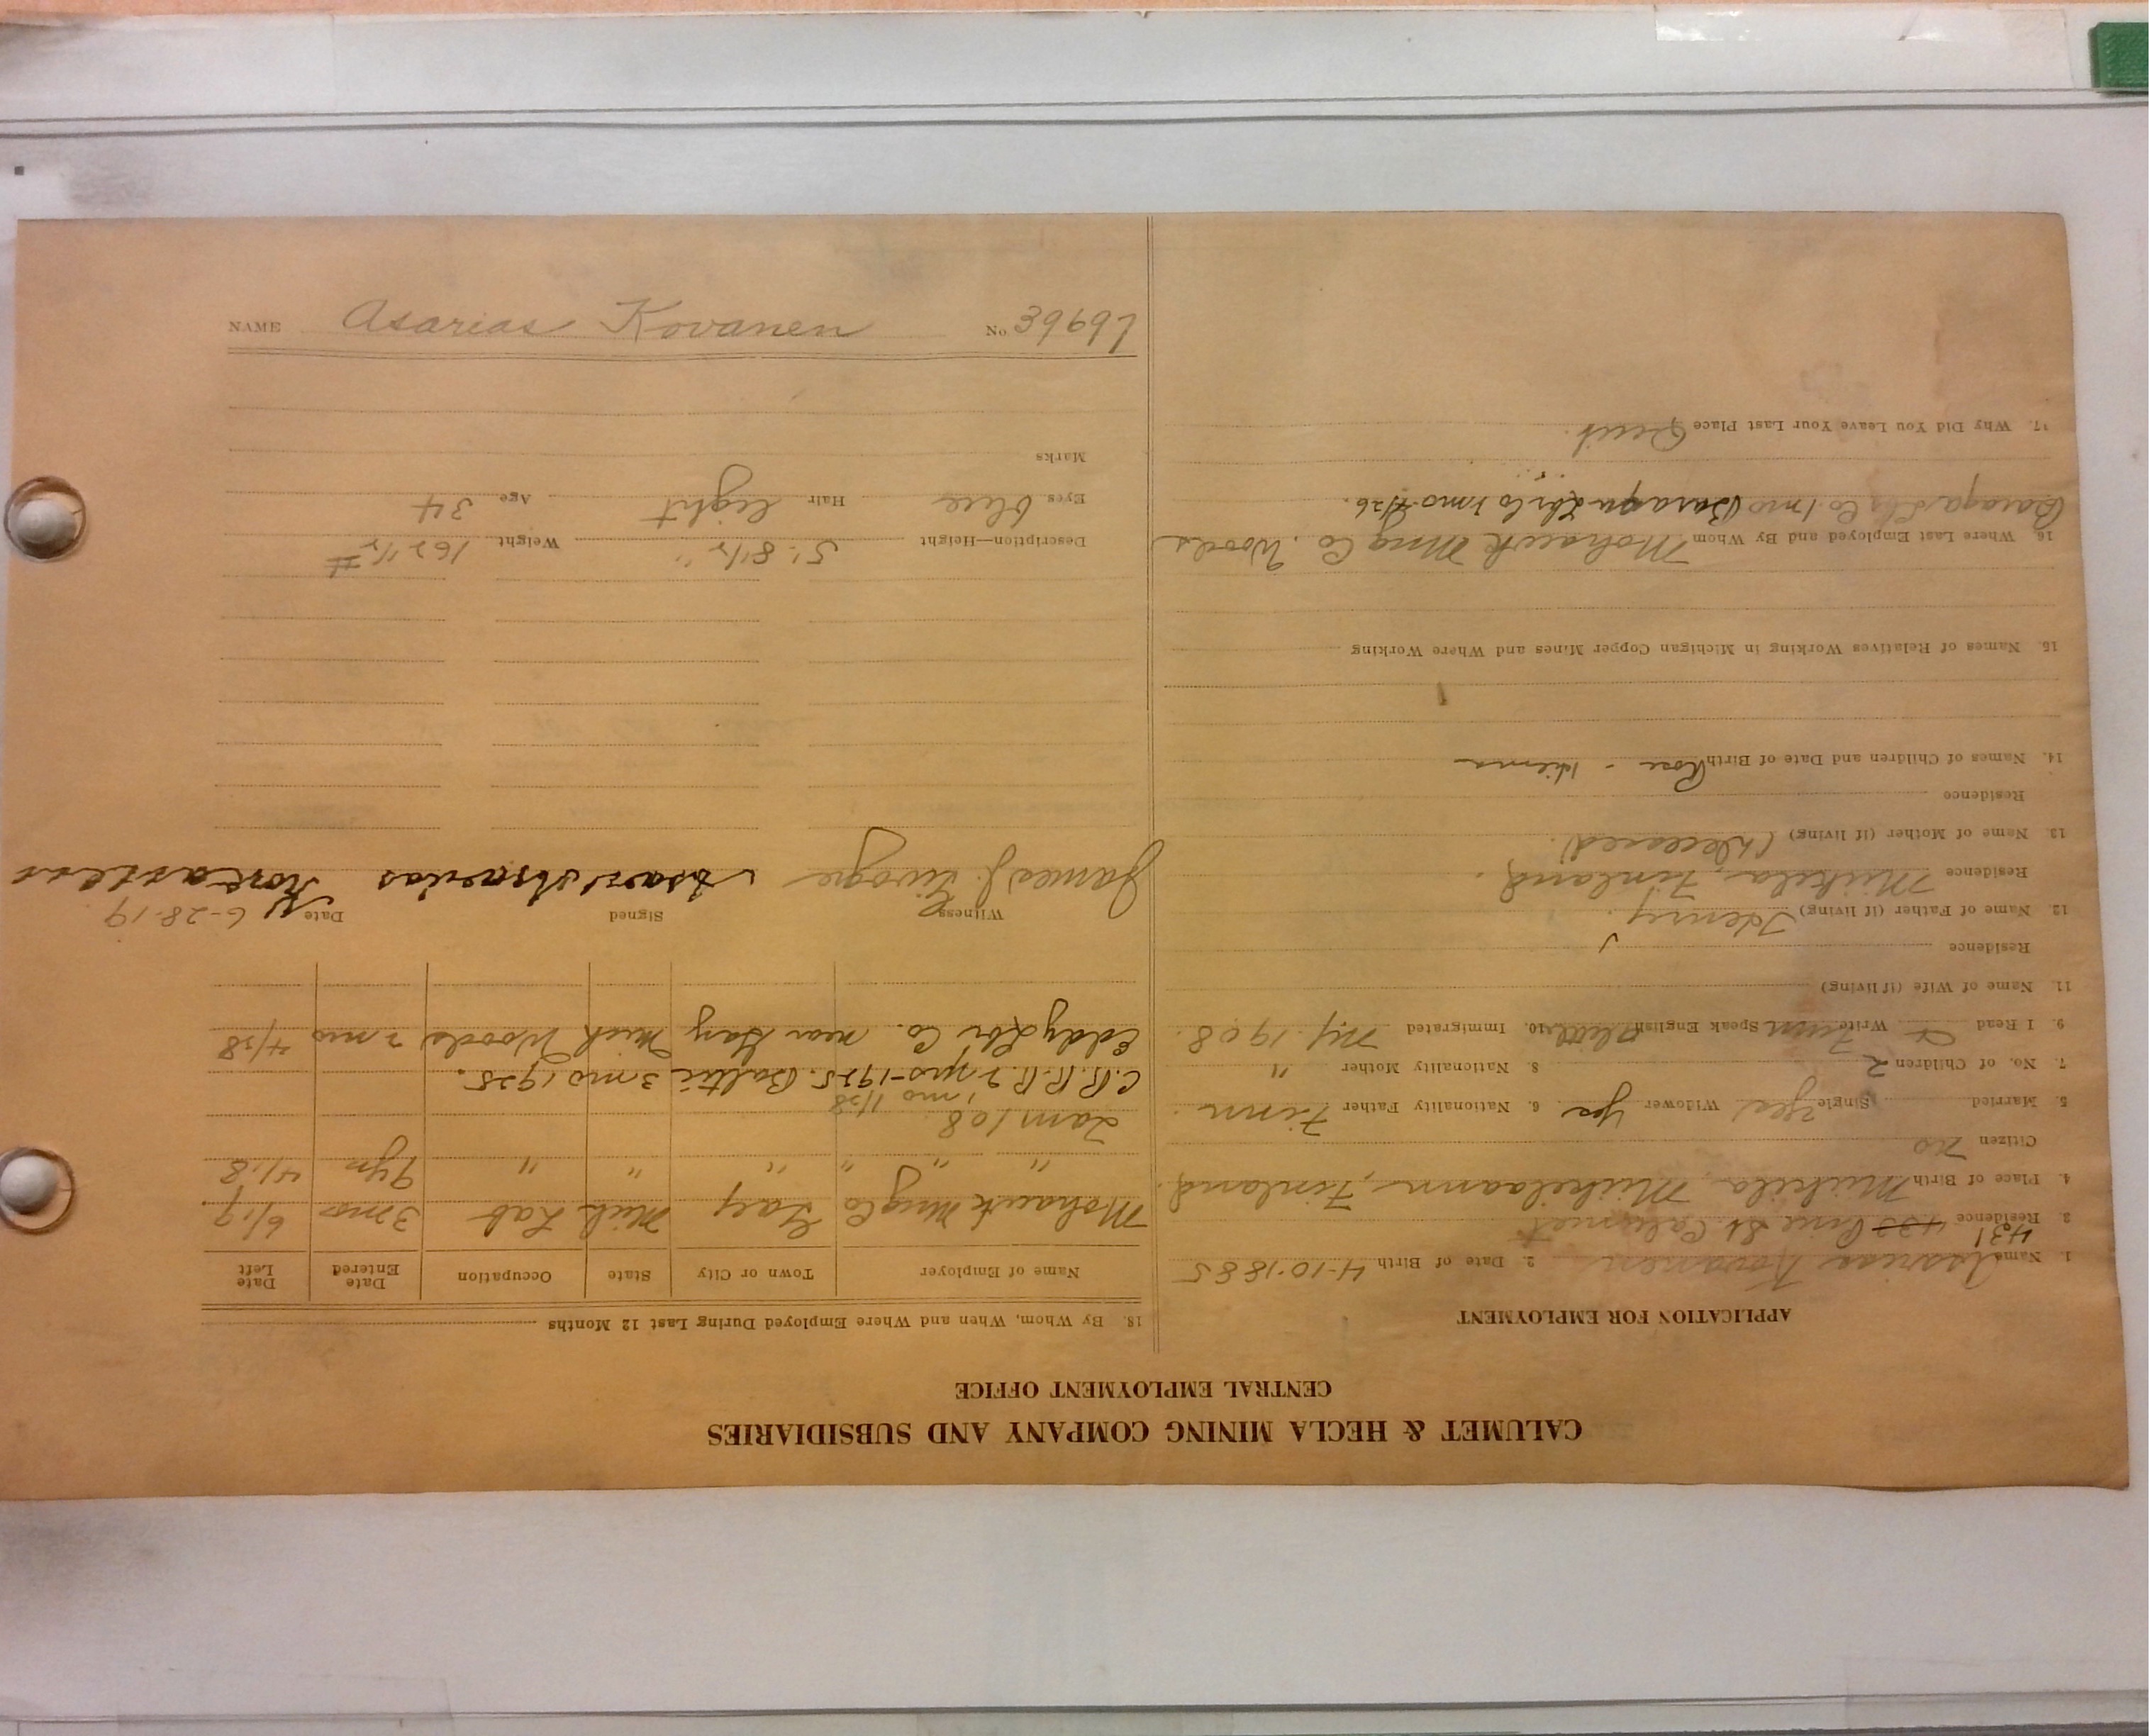 CALUMET & HECLA MINING COMPANY AND SUBSIDIARIES
CENTRAL EMPLOYMENT OFFICE
APPLICATION FOR EMPLOYMENT
1. Name Asarias Kovanen 2. Date of Birth 4-10-1885
431
3. Residence 433 Pine St Calumet
4. Place of Birth Mikkela, Mikkelaann, Finland.
Citizen no
5. Married Single yes Widower yes 6. Nationality Father Finn
7. No. of Children 2 8. Nationality Mother "
9. I Read & Write Finn Speak English little 10. Immigrated My. 1908.
11. Name of Wife (if living)
Residence
12. Name of Father (if living) Henry.
Residence Mikkela, Finland.
13. Name of Mother (if living) (Deceased).
Residence
14. Names of Children and Date of Birth Rose - Hilma
15. Names of Relatives Working in Michigan Copper Mines and Where Working
16. Where Last Employed and By Whom Mohawk Mng Co. Woods
Baraga Lbr Co 1 mo Baraga Lbr Co 1 mo 4/26.
17. Why Did You Leave Your Last Place Quit.
18. By Whom, When and Where Employed During Last 12 Months
Name of Employer Town or City State Occupation Date Entered Date Left
Mohawk Mng Co Gay Mich Lab 3 mo 6/19
" " " " " " 9 yr 4/18
Lam 108.
1 mo 1/28
C.R.R.R. 2 yrs-1925. Baltic 3 mo 1925.
Eddy Lbr Co. near Gay Mich Woods 2 mo 4/28
Witness Signed Date 6-28-19
James J. Asarias
Description—Height 5'. 8 1/2" Weight 162 1/2 #
Eyes blue Hair light Age 34
Marks
NAME Asarias Kovanen No 39697